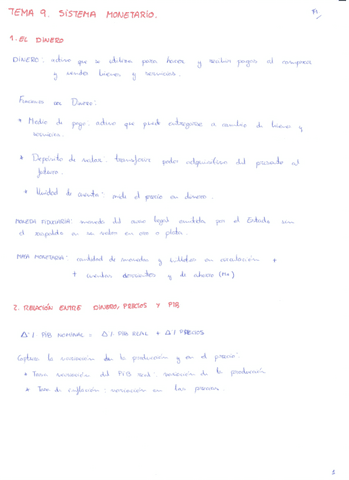 TEMA 9. SISTEMA MONETARIO.
1. EL DINERO
DINERO: activo que se utiliza para hacer y recibir pagos al comprar
y vender bienes y servicios.
Funciones del Dinero:
* Medio de pago: activo que puede entregarse a cambio de bienes y
servicios.
* Depósito de valor: transferir poder adquisitivo del presente al
futuro.
* Unidad de cuenta: mide el precio en dinero.
MONEDA FIDUCIARIA: moneda del curso legal emitida por el Estado sin
el respaldo en su valor en oro o plata.
MASA MONETARIA: cantidad de monedas y billetes en circulación +
+ cuentas corrientes y de ahorro
2. RELACIÓN ENTRE DINERO, PRECIOS Y PIB
Δ% PIB NOMINAL = Δ% PIB REAL + Δ% PRECIOS
Captura la variación de la producción y en el precio:
* Tasa variación del PIB real: variación de la producción
* Tasa de inflación: variación en los precios
1